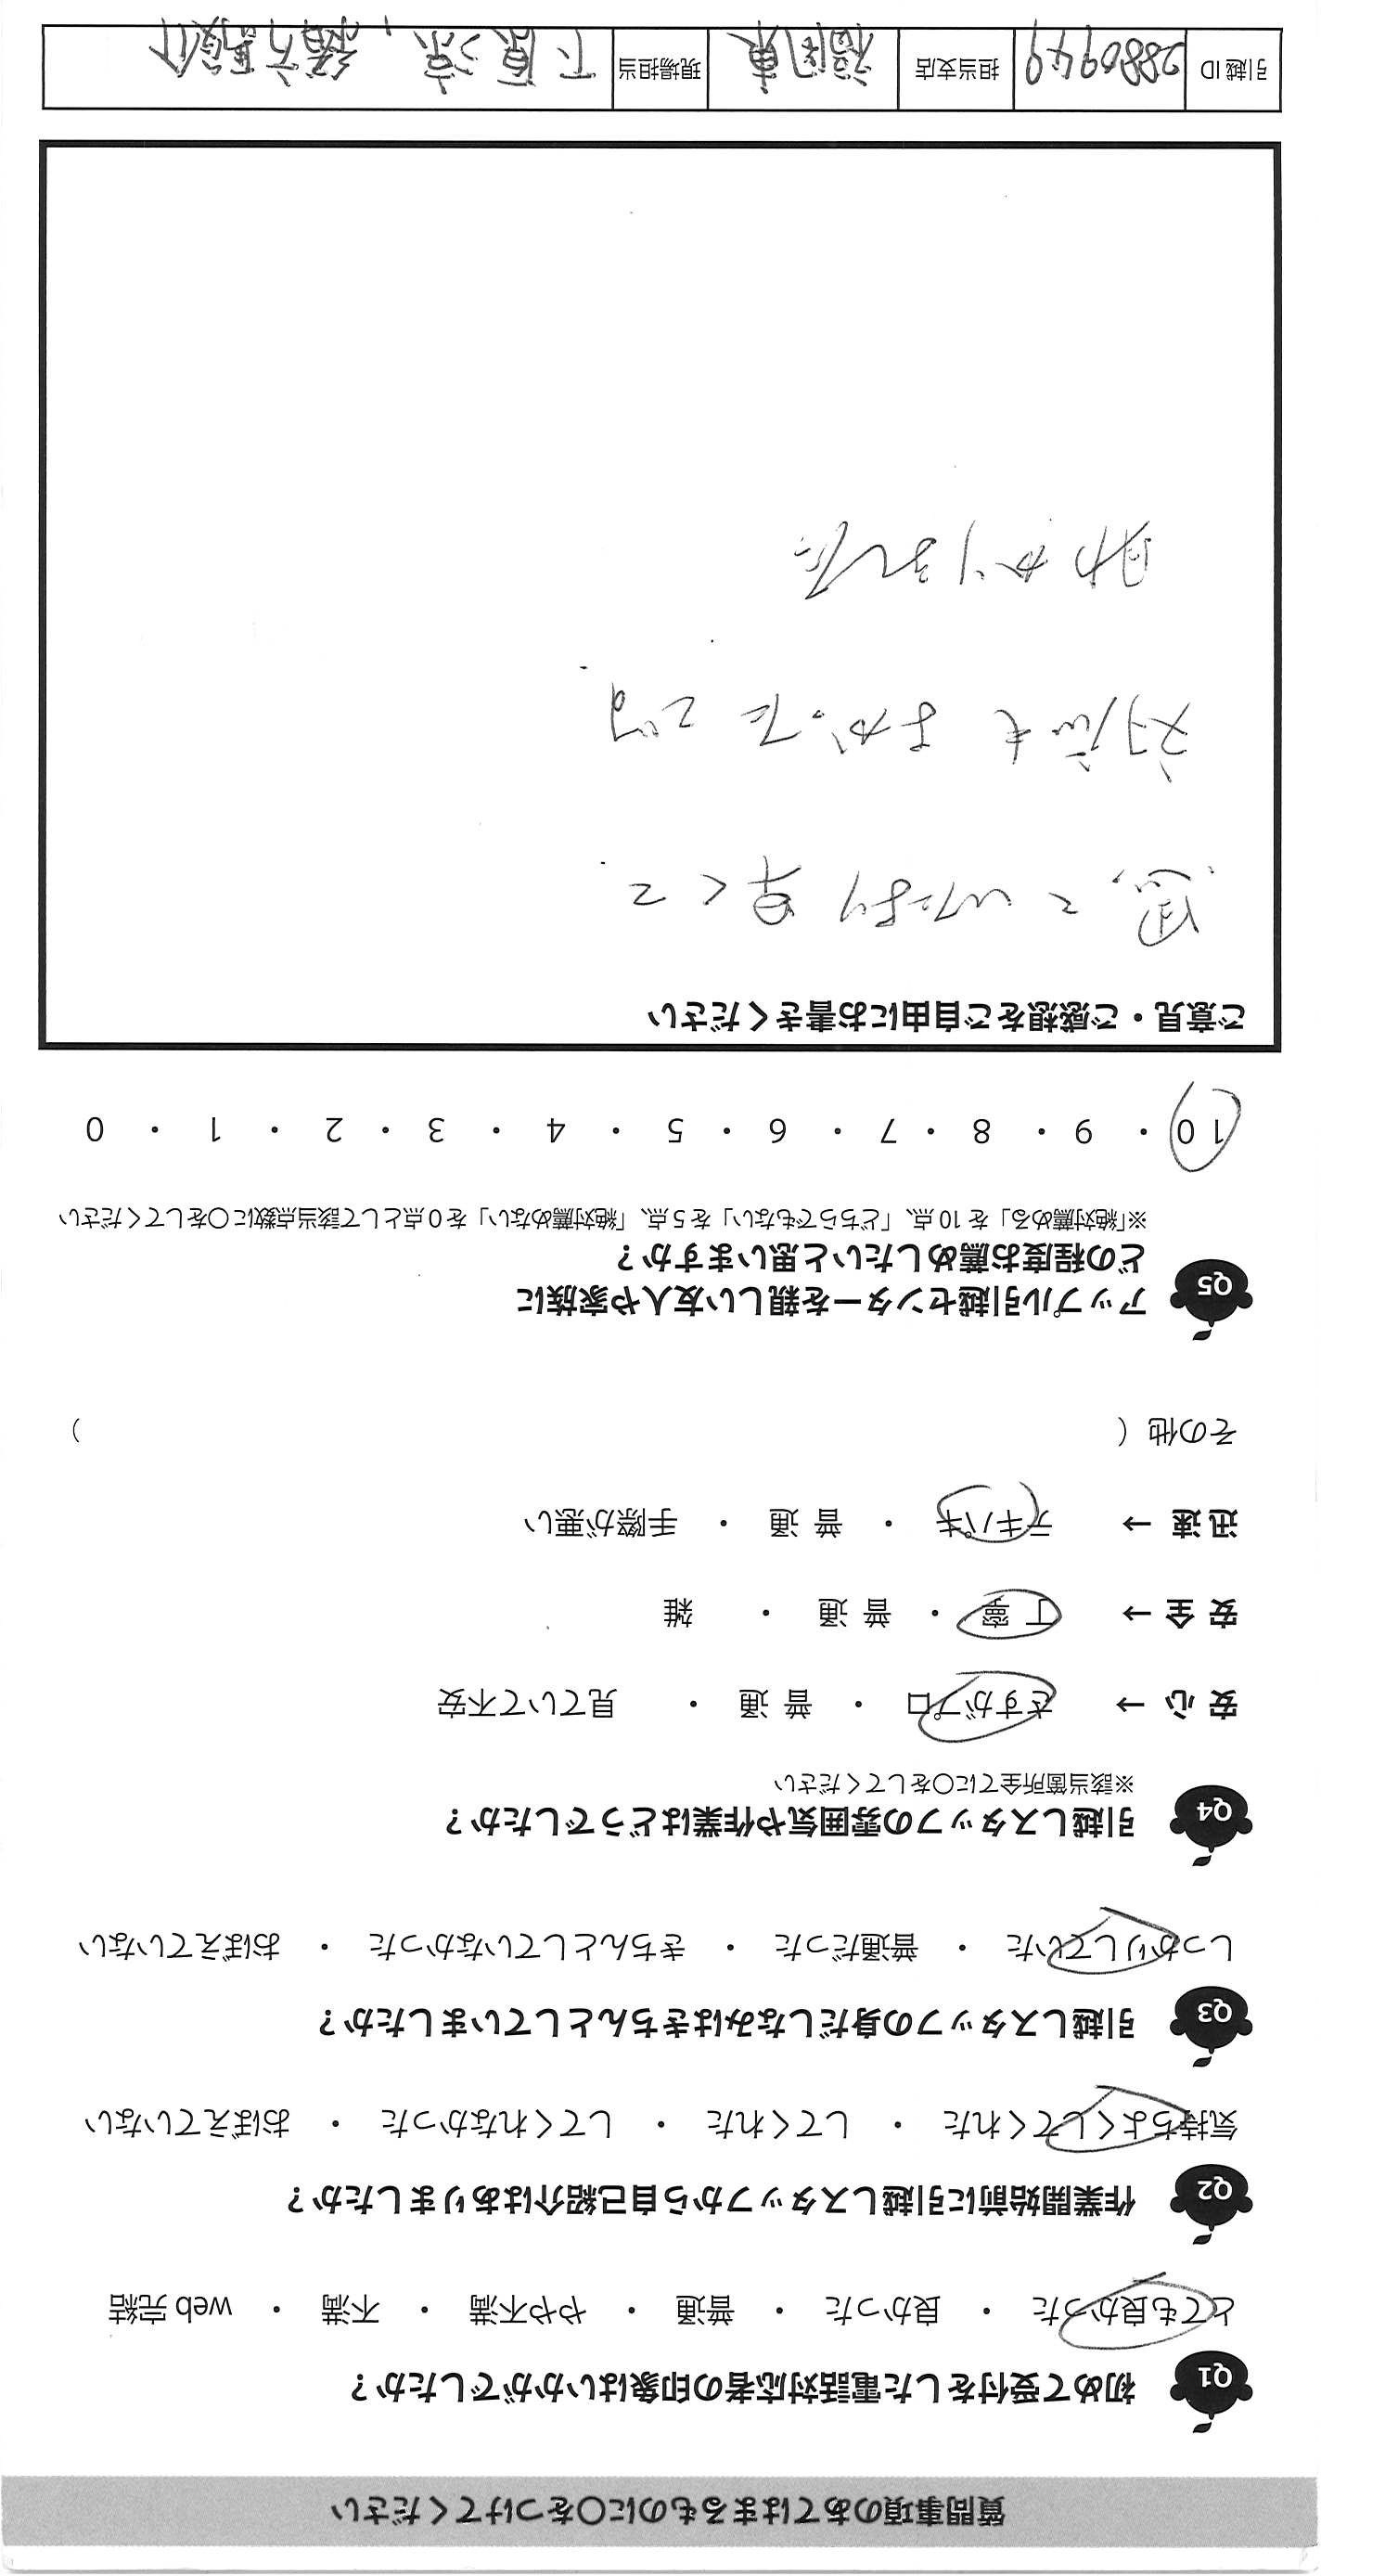 質問事項のあてはまるものに〇をつけてください
Q1 初めて受付をした電話対応者の印象はいかがでしたか？
とても良かった ・ 良かった ・ 普通 ・ やや不満 ・ 不満 ・ web 完結
Q2 作業開始前に引越しスタッフから自己紹介はありましたか？
気持ちよくしてくれた ・ してくれた ・ してくれなかった ・ おぼえていない
Q3 引越しスタッフの身だしなみはきちんとしていましたか？
しっかりしていた ・ 普通だった ・ きちんとしていなかった ・ おぼえていない
Q4 引越しスタッフの雰囲気や作業はどうでしたか？
※該当箇所全てに〇をしてください
安 心 → さすがプロ ・ 普 通 ・ 見ていて不安
安 全 → 丁 寧 ・ 普 通 ・ 雑
迅 速 → テキパキ ・ 普 通 ・ 手際が悪い
その他（ ）
Q5 アップル引越センターを親しい友人や家族に
どの程度お薦めしたいと思いますか？
※「絶対薦める」を 10 点、「どちらでもない」を 5 点、「絶対薦めない」を 0 点として該当点数に〇をしてください
10 ・ 9 ・ 8 ・ 7 ・ 6 ・ 5 ・ 4 ・ 3 ・ 2 ・ 1 ・ 0
ご意見・ご感想をご自由にお書きください
思っていたより早くて
対応もよかったです
助かりました
引越 ID 2880949 担当支店 福岡東 現場担当 下原涼、緒方